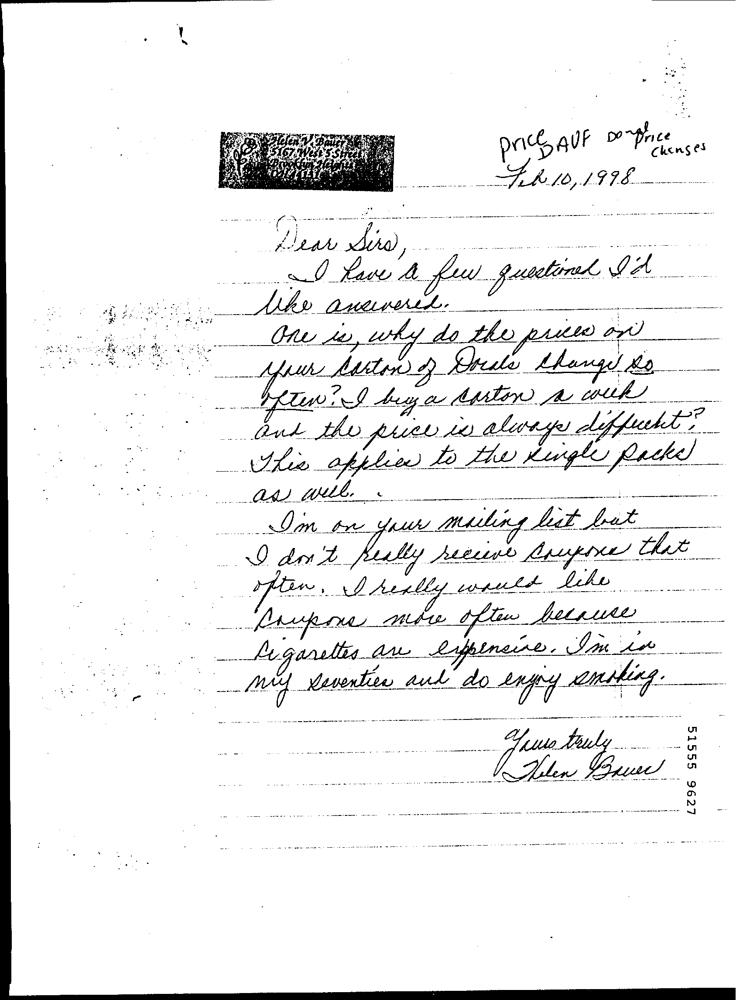 Helen V. Bauer
5167 West 5 Street
Brooklyn Heights
Price DAVF Price
Changes
Feb 10, 1998
Dear Sirs,
I have a few questions I'd
like answered.
One is, why do the prices on
your carton of Dorals change so
often? I buy a carton a week
and the price is always different?
This applies to the single packs
as well.
I'm on your mailing list but
I don't really recieve coupons that
often. I really would like
coupons more often because
cigarettes are expensive. I'm in
my seventies and do enjoy smoking.
Yours truly
Helen Bauer
51555 9627